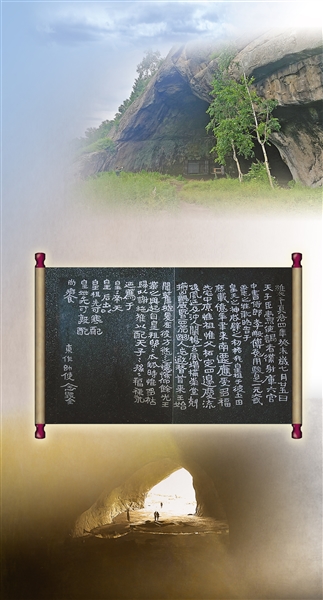 維太平真君四年癸未歲七月廿五日
天子臣燾使謁者僕射庫六官
中書侍郎李敞傅㝹用駿足一元大武
柔毛之牲敢昭告于
皇天之神啟辟之初祐我皇祖于彼土田
歷載億年聿來南遷應受多福
光宅中原惟祖惟父拓定四邊慶流
後胤延及沖人闡揚玄風增構崇堂剋
揃凶醜威暨四荒幽人忘遐稽首來王始
聞舊墟爰在彼方悠悠之懷希仰餘光王
業之興起自皇祖綿綿瓜瓞時惟多祜
歸以謝施推以配天子子孫孫福祿永
延薦于
皇皇帝天
皇皇后土
以皇祖先可寒配
皇妣先可敦配
尚饗
東作帥使念鑿